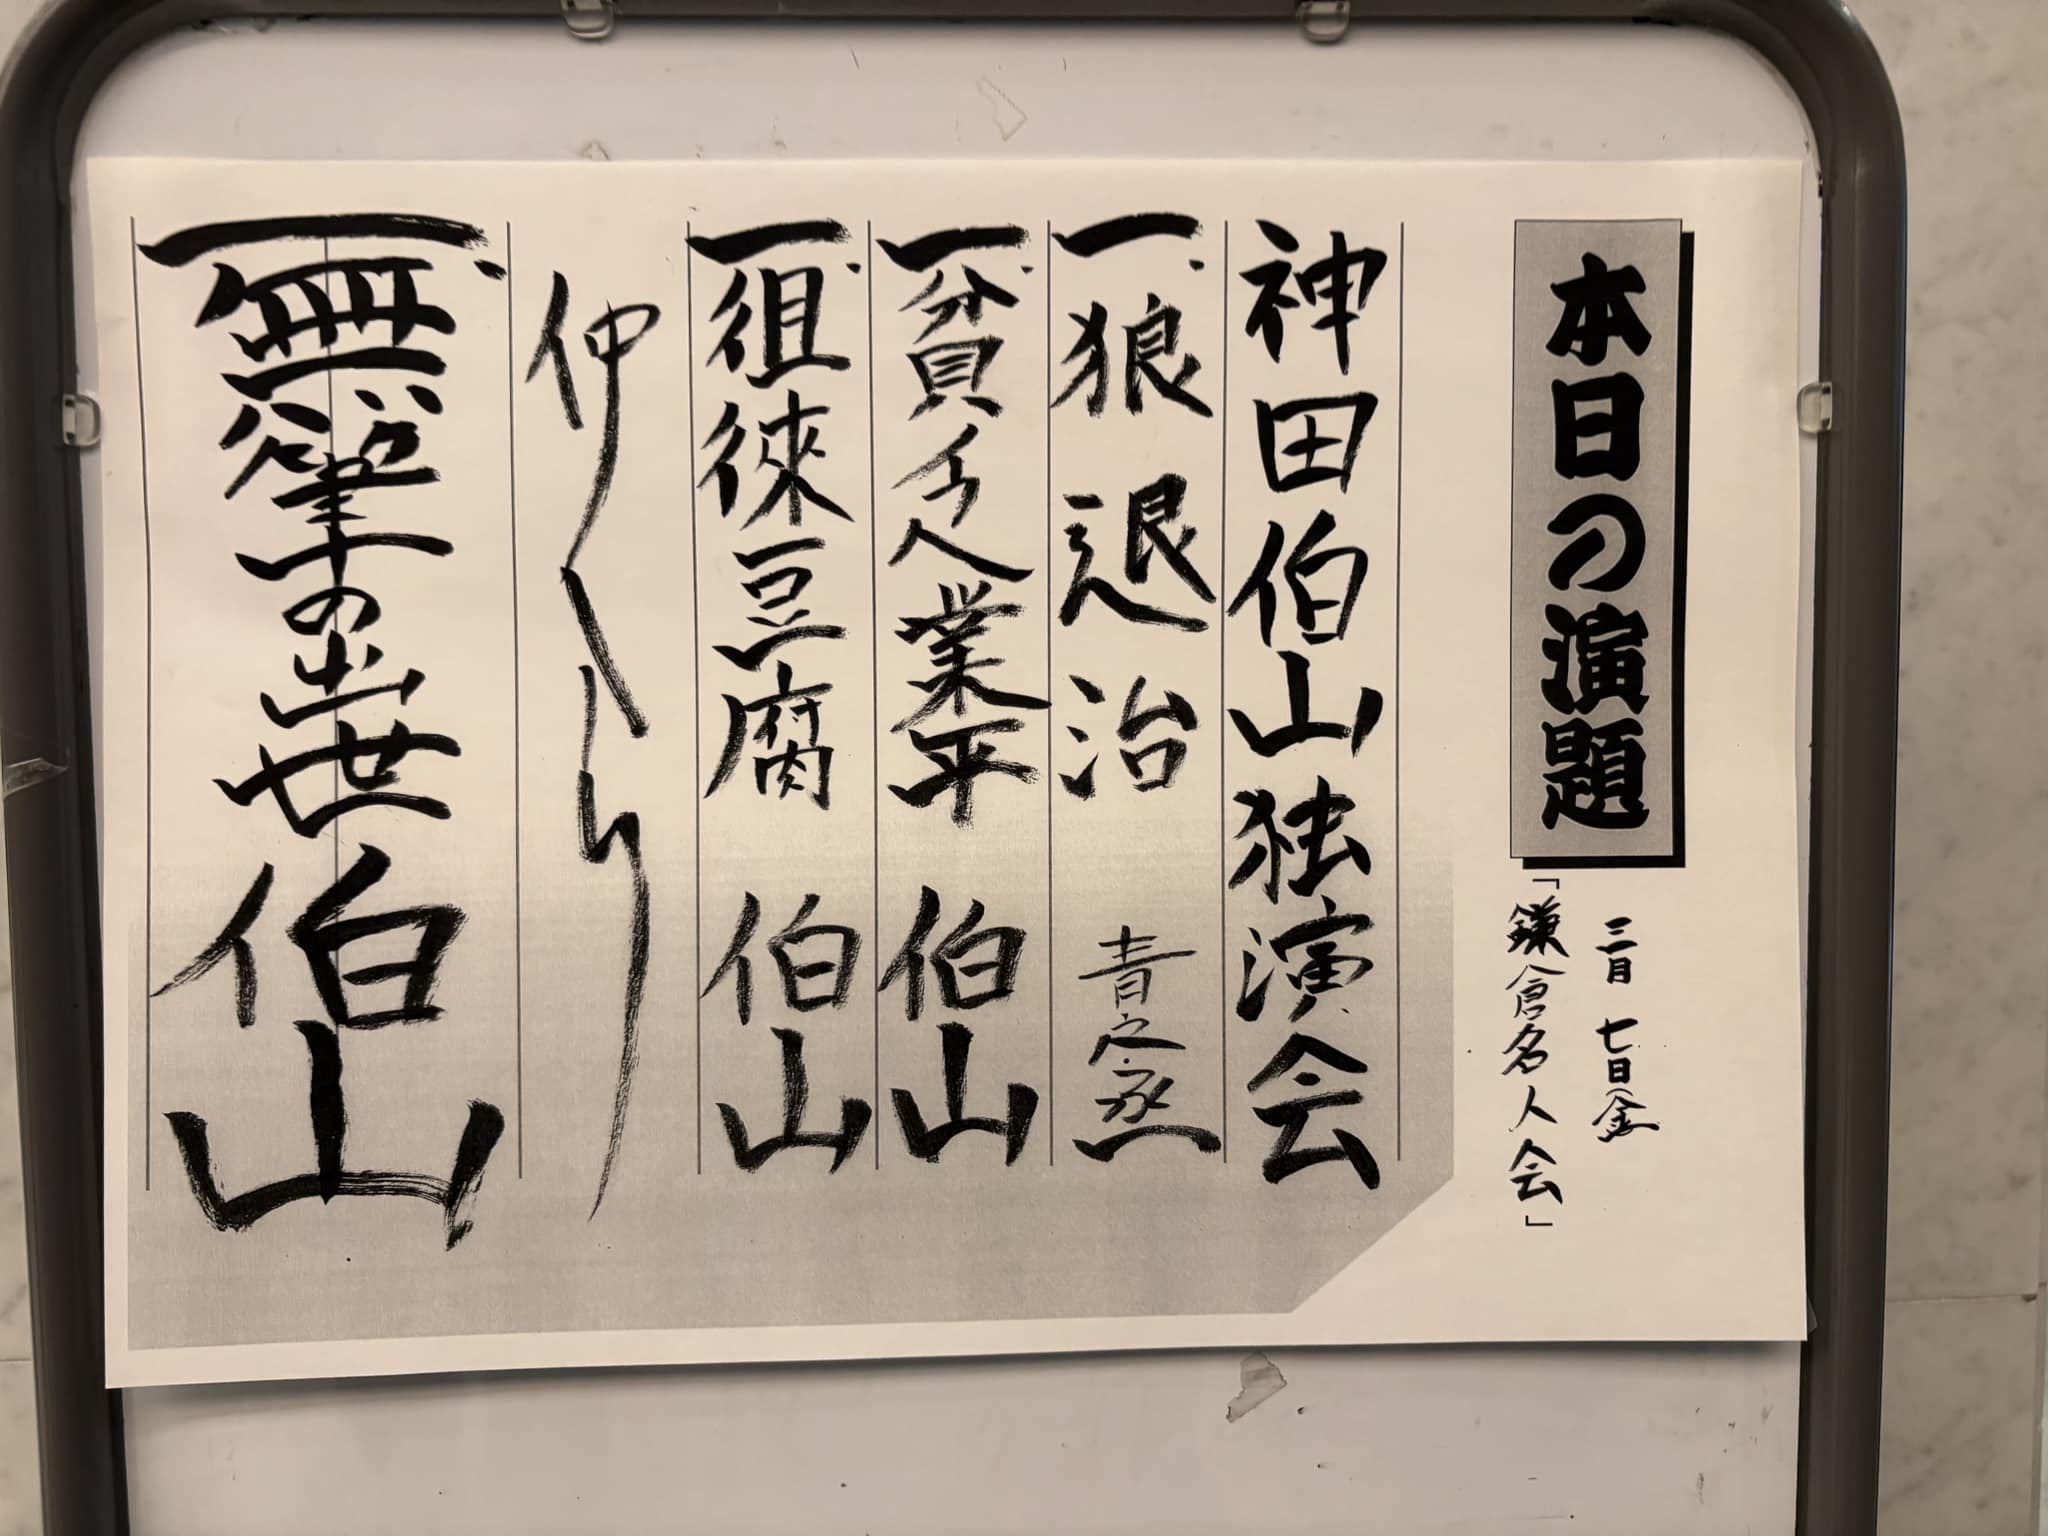 本日の演題
三月 七日(金)
「鎌倉名人会」
神田伯山独演会
一、狼退治 青之丞
一、貧乏人業平 伯山
一、徂徠豆腐 伯山
仲入り
一、無筆の出世 伯山